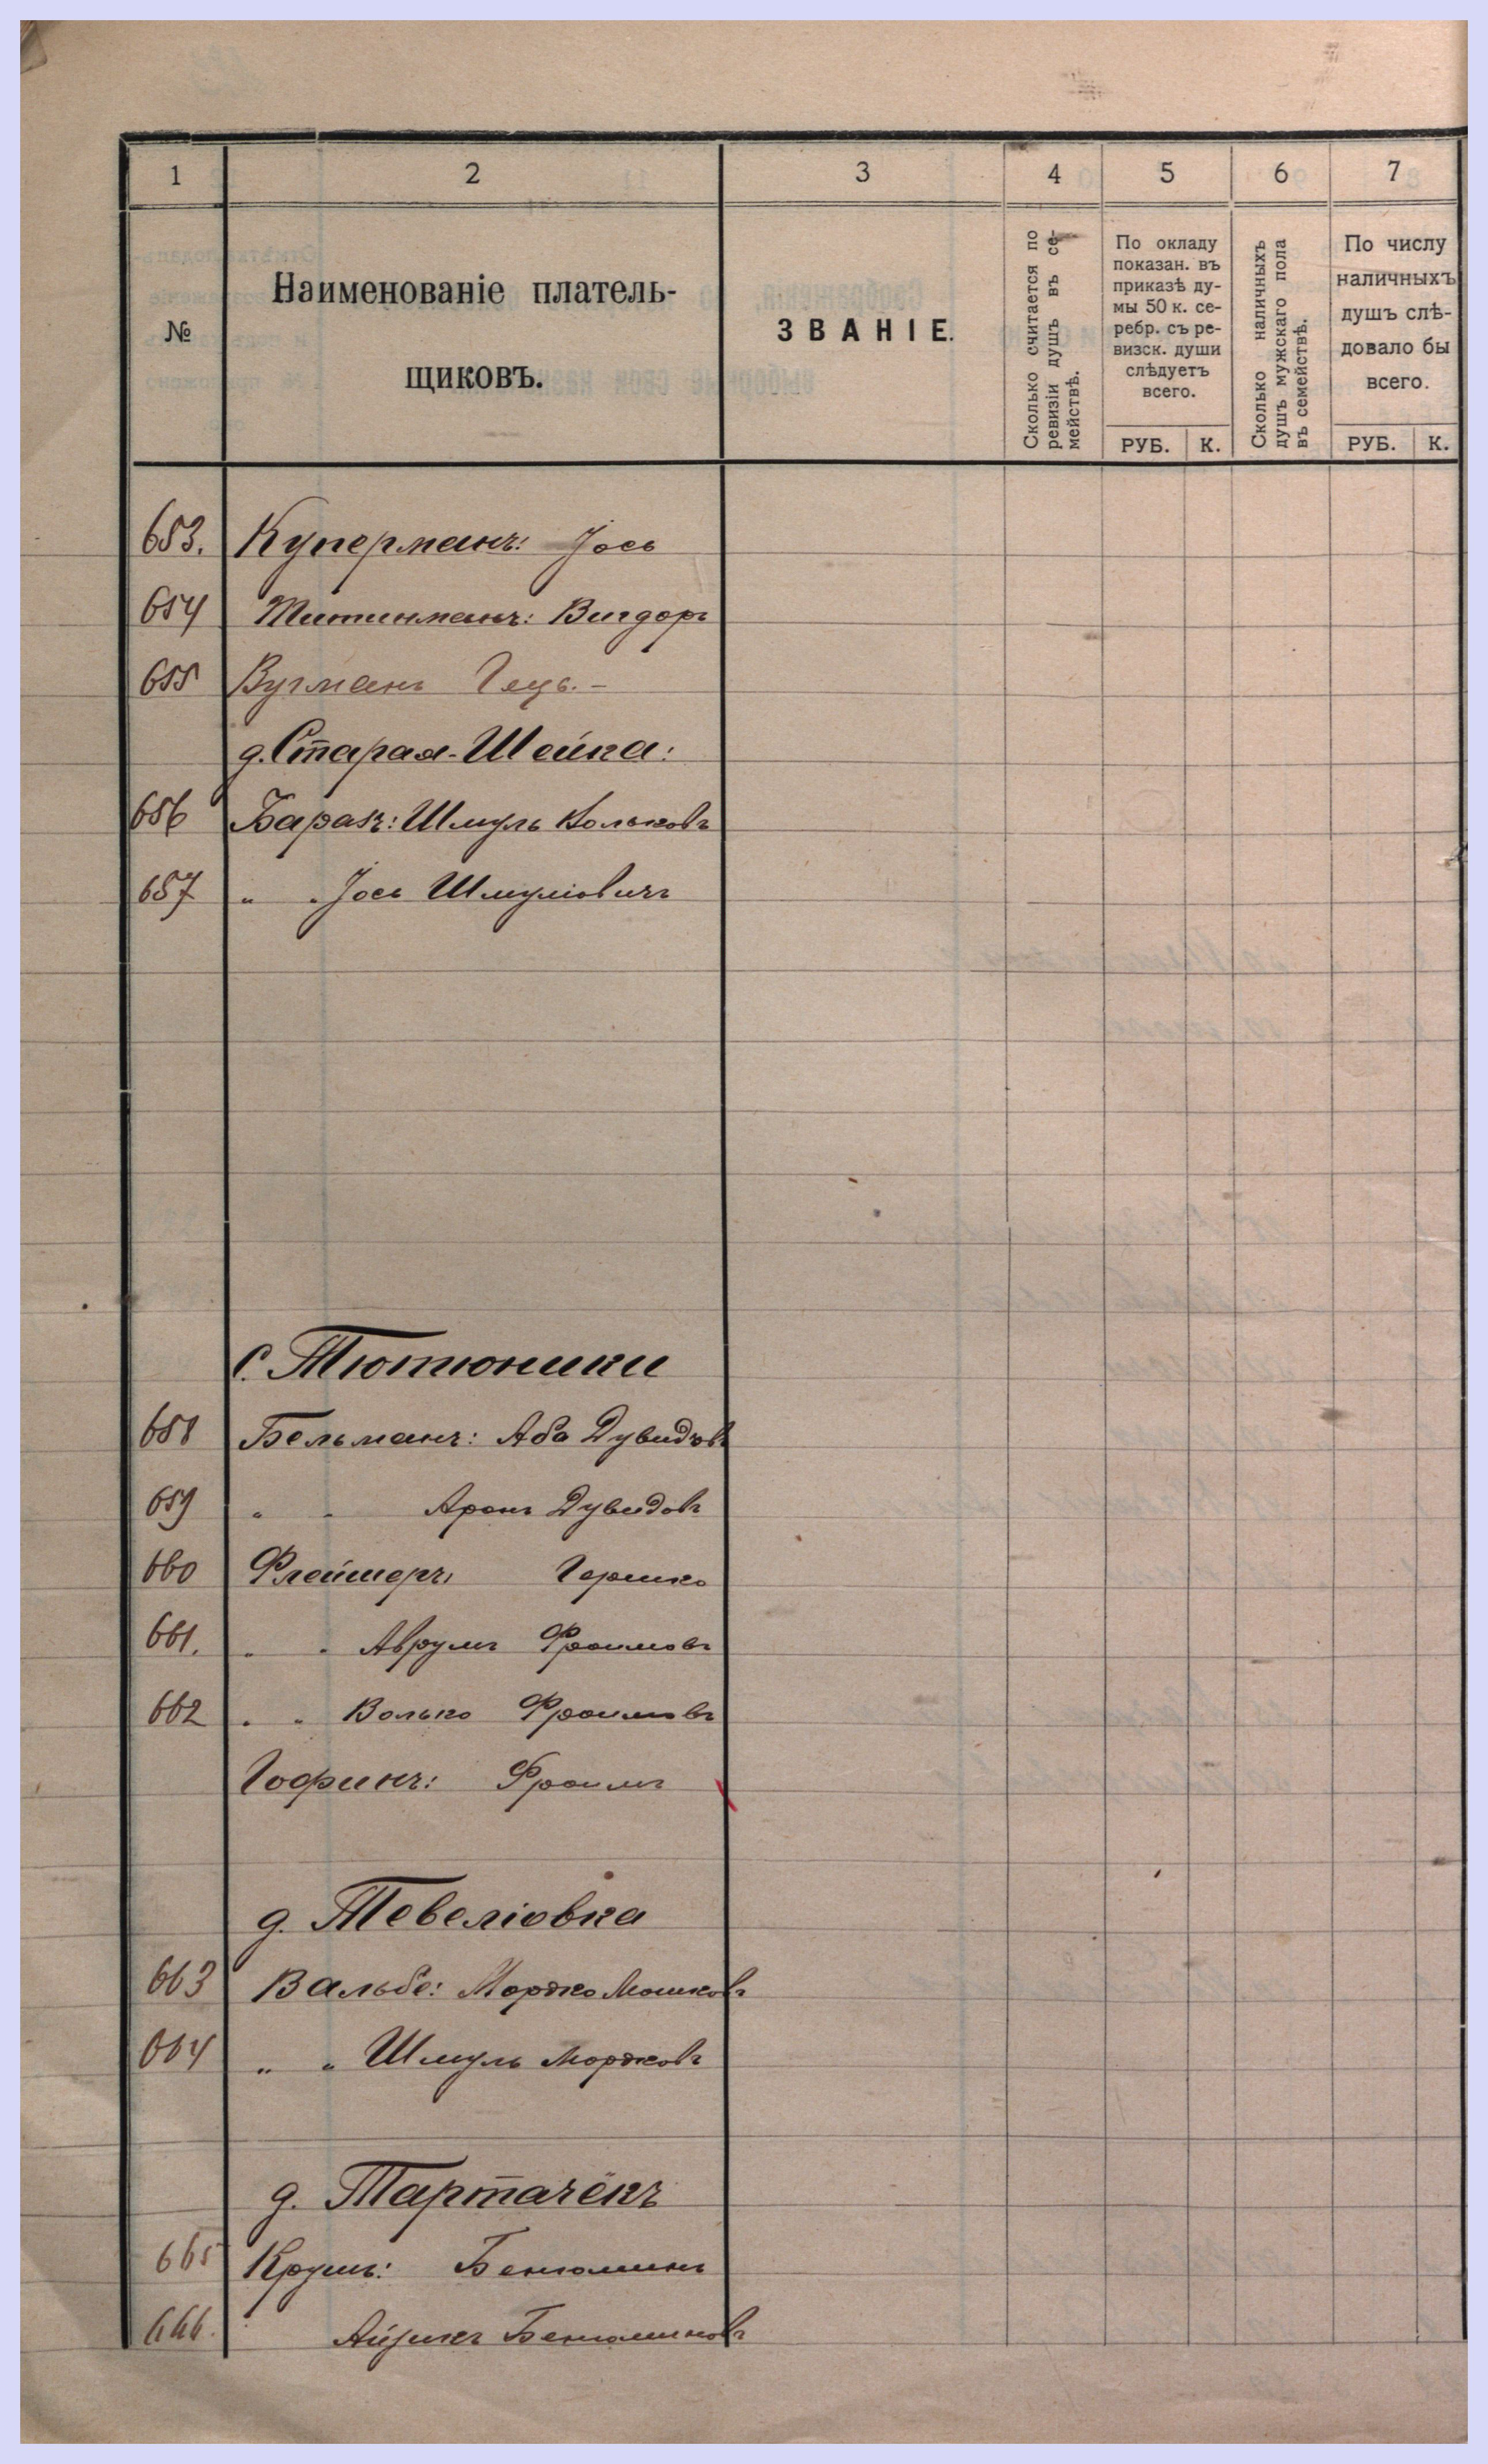 1 2 3 4 5 6 7
№
Наименованіе платель-
щиковъ.
ЗВАНІЕ.
Сколько считается по
ревизіи душъ въ се-
мействѣ.
По окладу
показан. въ
приказѣ ду-
мы 50 к. се-
ребр. съ ре-
визск. души
слѣдуетъ
всего.
РУБ. К.
Сколько наличныхъ
душъ мужскаго пола
въ семействѣ.
По числу
наличныхъ
душъ слѣ-
довало бы
всего.
РУБ. К.
653. Куперманъ: Іось
654 Титинманъ: Вигдоръ
655 Вугманъ Гецъ. –
д. Старая-Шейка:
656 Баракъ: Шмуль Вольковъ
657 „ „ Іось Шмуліовичъ
с. Тютюники
658 Бельманъ: Аба Дувидовъ
659 „ „ Аронъ Дувидовъ
660 Флейшеръ, Гершко
661. „ „ Аврумъ Фроимовъ
662 „ „ Волько Фроимовъ
Гофинъ: Фроимъ
д. Тевеліовка
663 Вальбе: Мордко Мошковъ
664 „ „ Шмуль Мордковъ
д. Тартачекъ
665 Крушъ: Бенюминъ
666. Айзикъ Бенюминовъ